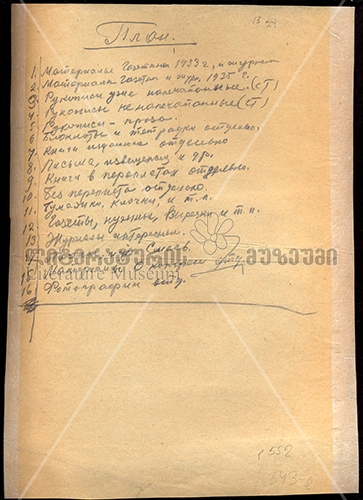 План.
1. Материалы Газетные 1933 г., и журналы
2. Материалы Газетн и журн, 1935 г.
3. Рукописи уже напечатанные. (ст)
4. Рукописи ненапечатанные (ст)
5. Рукописи - проза.
6. Блокноты и тетрадки отдельно,
7. Книги изданные отдельно
8. Письма, извещения и др.
9. Книги в переплетах отдельно.
10. Без переплета отдельно.
11. Бумажки, клочки, и т. п.
12. Газеты, нужные, Вырезки и т. п.
13. Журналы интересные.
ლიტერატურის მუზეუმი
Literature Museum
16. Фотографии отд.
552